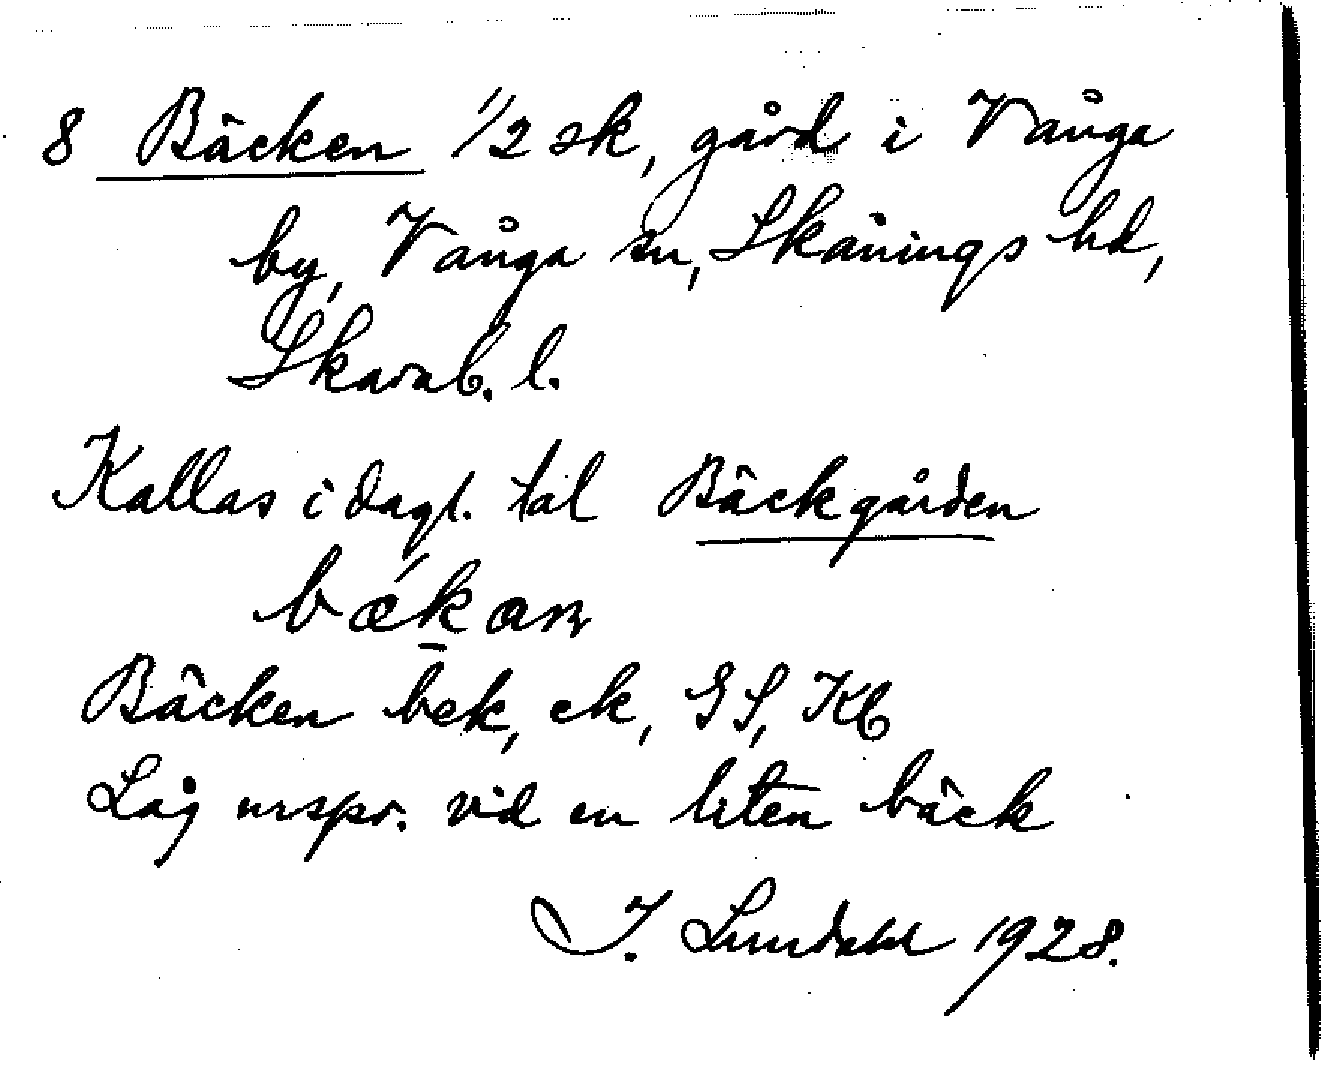 8 Bäcken 1/2 sk, gård i Vånga
by, Vånga sn, Skånings hd,
Skarab. l.
Kallas i dagl. tal Bäckgården
Bäcken bek, ek, GS, Kb
Låg urspr. vid en liten bäck
I. Lundahl 1928.